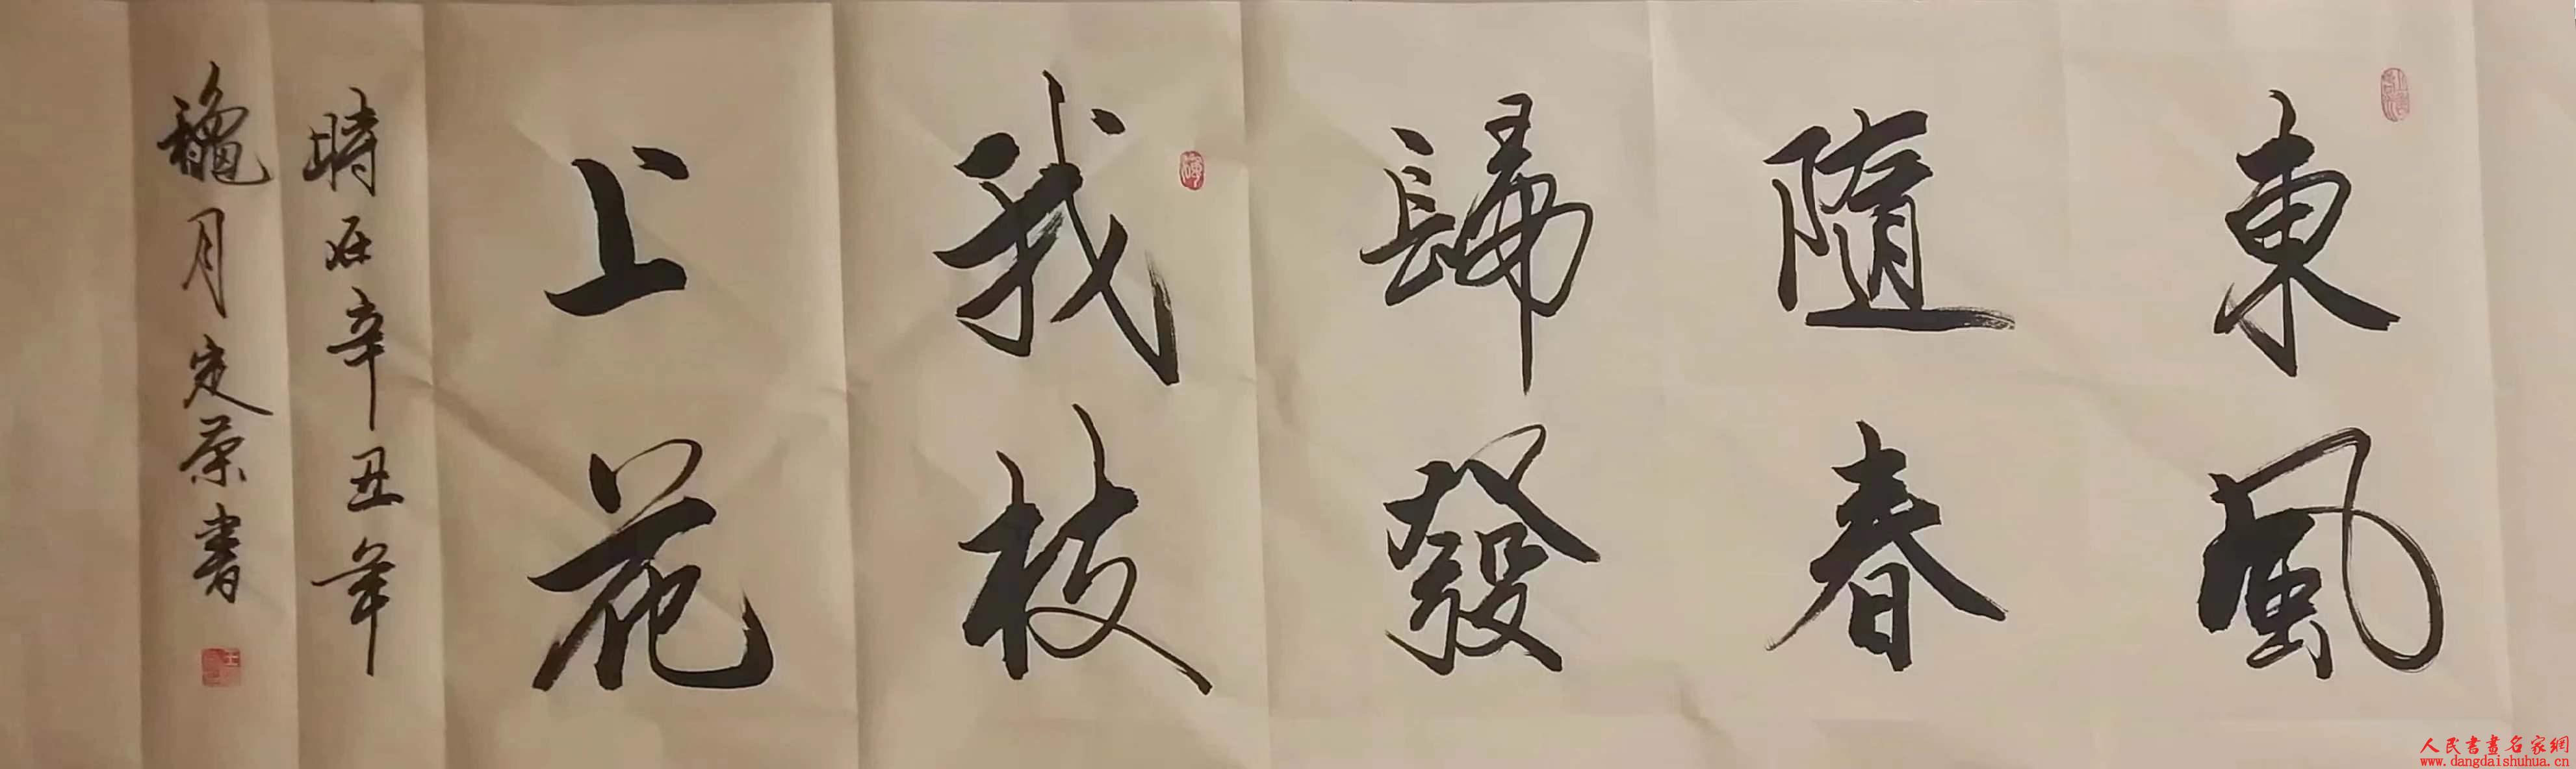 東風
隨春
歸發
我枝
上花
時在辛丑年
龝月定榮書
人民書畫名家網
www.dangdaishuhua.cn